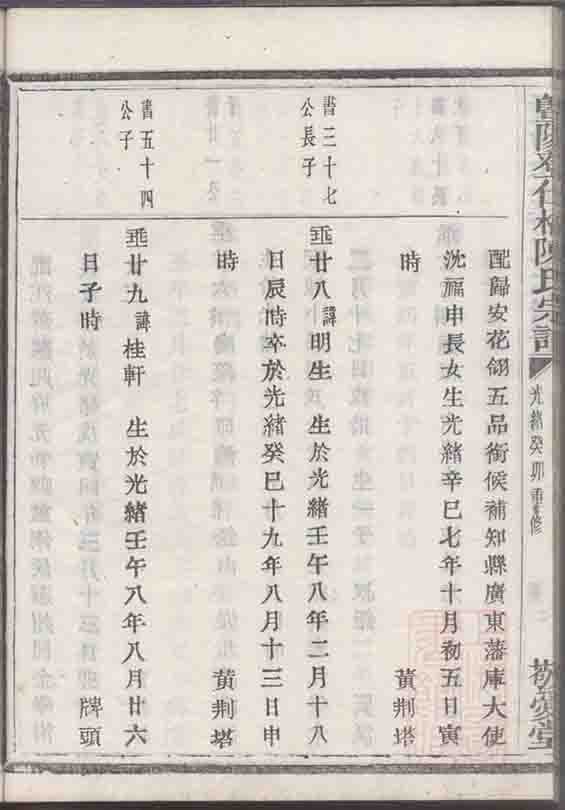 陳氏宗譜
光緒癸卯重修
敬愛堂
配歸安花翎五品銜候補知縣廣東藩庫大使
沈福申長女生光緒辛巳七年十月初五日寅
時 黃荆塔
書三十七
公長子
垂廿八諱明生 生於光緒壬午八年二月十八
日辰時卒於光緒癸巳十九年八月十三日申
時 黃荆塔
書五十四
公子
垂廿九諱桂軒 生於光緒壬午八年八月廿六
日子時 牌頭